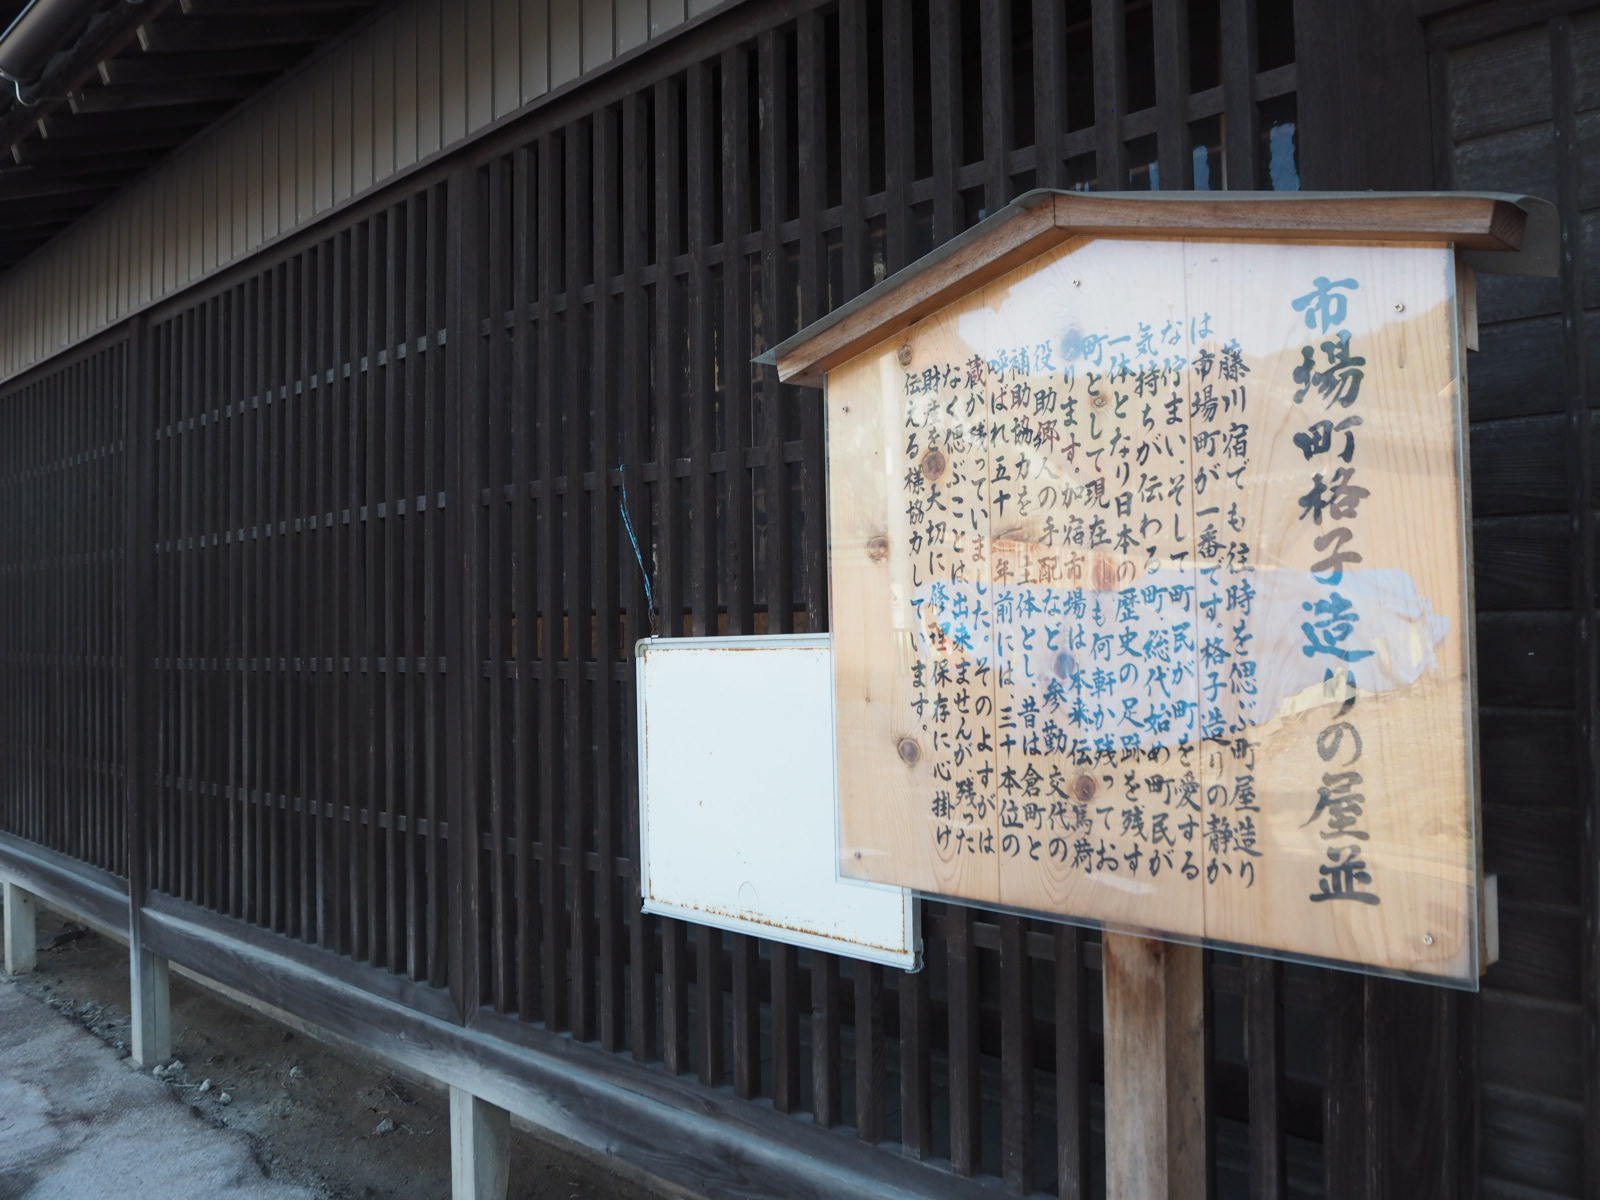 市場町格子造りの屋並
藤川宿でも往時を偲ぶ町屋造り
は市場町が一番です。格子造りの静か
な佇まい、そして町民が町を愛する
気持ちが伝わる町、総代始め町民が
一体となり日本の歴史の足跡を残す
町として現在も何軒か残ってお
ります。加宿市場は本来、伝馬荷
役、助郷人の手配など参勤交代の
補助協力を主体とし、昔は倉町と
呼ばれ五十年前には、三十本位の
蔵が残っていました。そのよすがは
なく偲ぶことは出来ませんが、残った
財産を大切に修理保存に心掛け
伝える様協力しています。